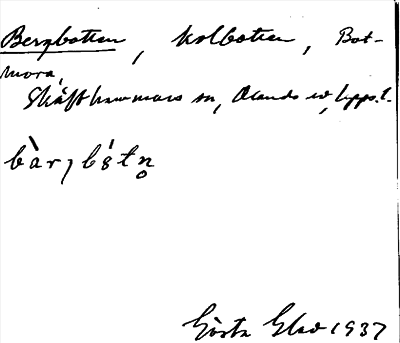 Bergbotten, Kolbotten, Bot-
mora,
Skäfthammars sn, Olands hd, Uppl.
bàrjbótn̥
Gösta Glad 1937